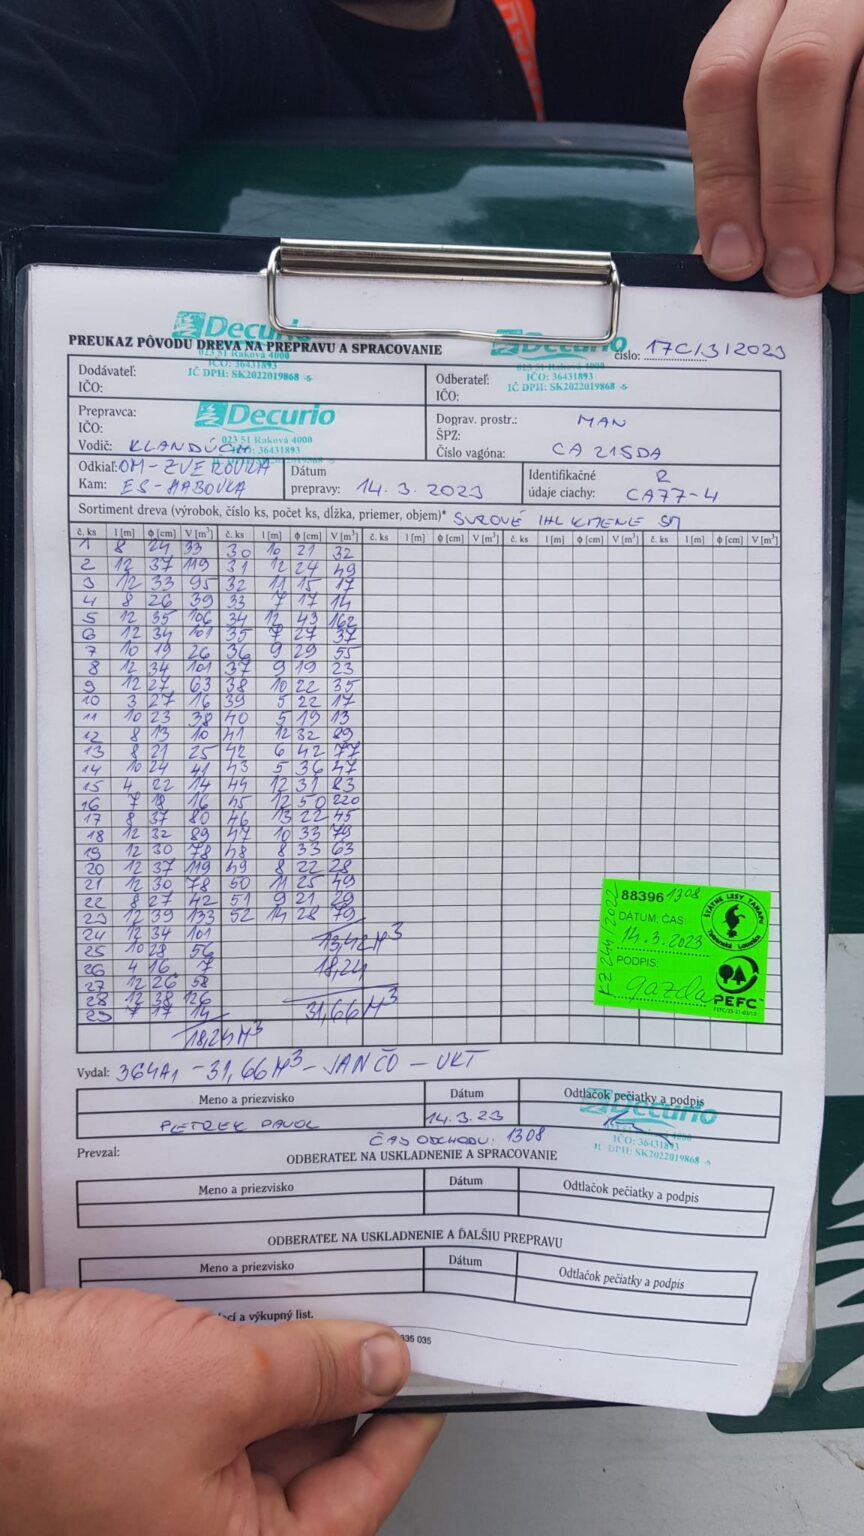 Decurio
PREUKAZ PÔVODU DREVA NA PREPRAVU A SPRACOVANIE
Decurio
číslo: 17C/3/2023
023 51 Raková 4000
IČO: 36431893
IČ DPH: SK2022019868 -5-
IČO: 36431893
IČ DPH: SK2022019868 -5-
Dodávateľ:
IČO:
Odberateľ:
IČO:
Prepravca:
IČO:
Decurio
023 51 Raková 4000
IČO: 36431893
Vodič: KLANDÚCH
Doprav. prostr.: MAN
ŠPZ:
Číslo vagóna: CA 215DA
Odkiaľ: OM-ZVEROVKA
Kam: ES-HABOVKA
Dátum
prepravy: 14. 3. 2023
Identifikačné R
údaje ciachy: CA77-4
Sortiment dreva (výrobok, číslo ks, počet ks, dĺžka, priemer, objem)* SUROVÉ IHL KMENE SM
č. ks l [m] ϕ [cm] V [m³] č. ks l [m] ϕ [cm] V [m³] č. ks l [m] ϕ [cm] V [m³] č. ks l [m] ϕ [cm] V [m³] č. ks l [m] ϕ [cm] V [m³]
1 8 24 33 30 10 21 32
2 12 37 119 31 12 24 49
3 12 33 95 32 11 15 17
4 8 26 39 33 7 17 14
5 12 35 106 34 12 43 162
6 12 34 101 35 7 27 37
7 10 19 26 36 9 29 55
8 12 34 101 37 9 19 23
9 12 27 63 38 10 22 35
10 3 27 16 39 5 22 17
11 10 23 38 40 5 19 13
12 8 13 10 41 12 32 89
13 8 21 25 42 6 42 77
14 10 24 41 43 5 36 47
15 4 22 14 44 12 31 83
16 7 18 16 45 12 50 220
17 8 37 80 46 13 22 45
18 12 32 89 47 10 33 79
19 12 30 78 48 8 33 63
20 12 37 119 49 8 22 28
21 12 30 78 50 11 25 49
22 8 27 42 51 9 21 29
23 12 39 133 52 14 28 79
24 12 34 101
25 10 28 56 13,42 M³
26 4 16 7 18,24
27 12 26 58
28 12 38 126 31,66 M³
29 7 17 14
18,24 M³
88396 1308
DÁTUM, ČAS:
14.3.2023
PODPIS:
gazda
ŠTÁTNE LESY TANAPU
Tatranská Lomnica
PEFC
Vydal: 364A1 - 31,66 M³ - JANČO - UKT
Meno a priezvisko Dátum Odtlačok pečiatky a podpis
PIETREK PAVOL 14.3.23
Decurio
IČO: 36431893
IČ DPH: SK2022019868 -5-
ČAS ODCHODU: 1308
Prevzal:
ODBERATEĽ NA USKLADNENIE A SPRACOVANIE
Meno a priezvisko Dátum Odtlačok pečiatky a podpis
ODBERATEĽ NA USKLADNENIE A ĎALŠIU PREPRAVU
Meno a priezvisko Dátum Odtlačok pečiatky a podpis
a výkupný list.
335 035